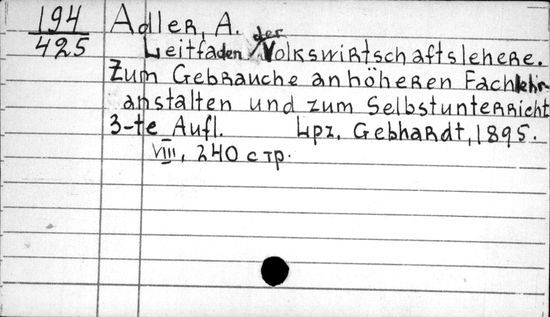 194
425
Adler, A.
Leitfaden der Volkswirtschaftslehere.
Zum Gebrauche an höheren Fachlehr-
anstalten und zum Selbstunterricht
3-te Aufl. Lpz, Gebhardt, 1895.
VIII, 240 стр.